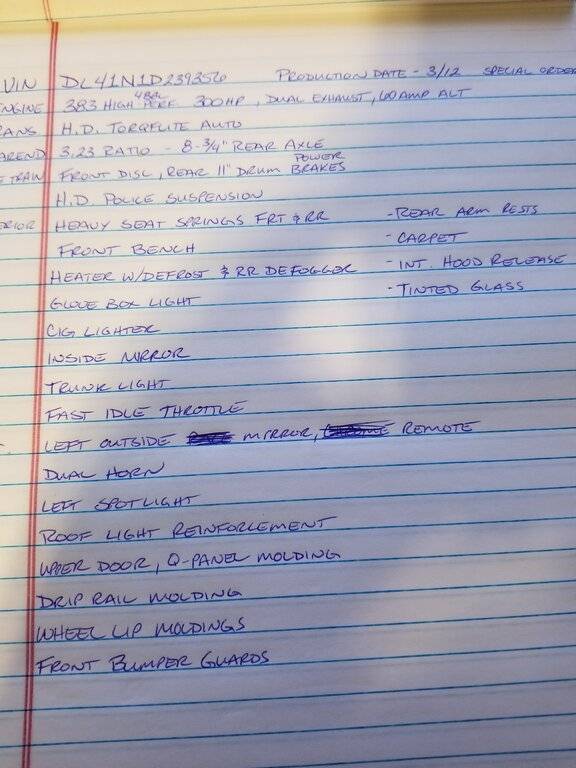 VIN DL41N1D239356 PRODUCTION DATE - 3/12 SPECIAL ORDER
ENGINE 383 HIGH 4BBL PERF 300HP, DUAL EXHAUST, 60 AMP ALT
RANS H.D. TORQFLITE AUTO
AREND 3.23 RATIO - 8-3/4" REAR AXLE
E TRAIN FRONT DISC, REAR 11" DRUM POWER BRAKES
H.D. POLICE SUSPENSION
ERIOR HEAVY SEAT SPRINGS FRT & RR - REAR ARM RESTS
FRONT BENCH - CARPET
HEATER W/DEFROST & RR DEFOGGER - INT. HOOD RELEASE
GLOVE BOX LIGHT - TINTED GLASS
CIG LIGHTER
INSIDE MIRROR
TRUNK LIGHT
FAST IDLE THROTTLE
LEFT OUTSIDE MIRROR, REMOTE
DUAL HORN
LEFT SPOTLIGHT
ROOF LIGHT REINFORCEMENT
UPPER DOOR, Q-PANEL MOLDING
DRIP RAIL MOLDING
WHEEL LIP MOLDINGS
FRONT BUMPER GUARDS